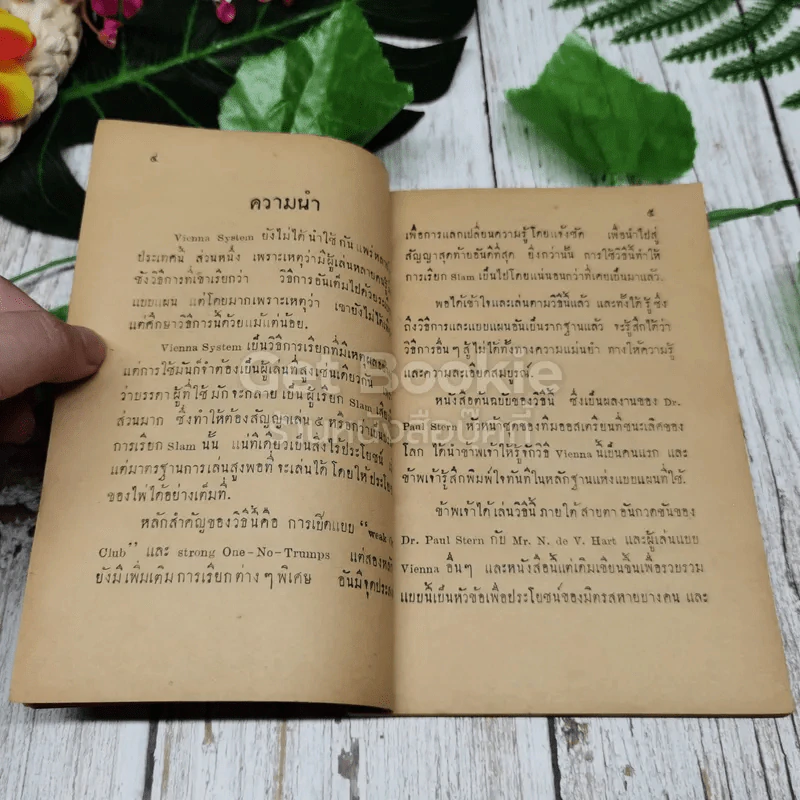 ๔
ความนำ
Vienna System ยังไม่ได้นำใช้กันแพร่หลาย
ประเทศนี้ ส่วนหนึ่ง เพราะเหตุว่ามีผู้เล่นหลายคน
ซึ่งวิธีการที่เขาเรียกว่า วิธีการอันเต็มไปด้วย
แบบแผน แต่โดยมากเพราะเหตุว่า เขายังไม่ได้
แต่ศึกษาวิธีการนี้ด้วยแม้แต่น้อย.
Vienna System เป็นวิธีการเรียกที่มีเหตุผล
แต่การใช้มันก็จำต้องเป็นผู้เล่นที่สูงเช่นเดียวกัน
ว่าบรรดาผู้ที่ใช้มักจะกลายเป็นผู้เรียก Slam
ส่วนมาก ซึ่งทำให้ต้องสัญญาเล่น ๕ หรือกว่า
การเรียก Slam นั้น แน่ทีเดียวเป็นสิ่งไร้ประโยชน์
แต่มาตรฐานการเล่นสูงพอที่จะเล่นได้ โดยให้
ของไพ่ได้อย่างเต็มที่.
หลักสำคัญของวิธีนี้คือ การเย็ดแบบ "weak
Club" และ strong One-No-Trumps แต่สองหลัก
ยังมีเพิ่มเติมการเรียกต่าง ๆ พิเศษ อันมีจุดประสงค์
๕
เพื่อการแลกเปลี่ยนความรู้โดยแจ้งชัด เพื่อนำไปสู่
สัญญาสุดท้ายอันดีที่สุด ยิ่งกว่านั้น การใช้วิธีนี้ทำให้
การเรียก Slam เป็นไปโดยแน่นอนกว่าที่เคยเป็นมาแล้ว.
พอได้เข้าใจและเล่นตามวิธีนี้แล้ว และทั้งได้รู้ซึ้ง
ถึงวิธีการและแบบแผนอันเป็นรากฐานแล้ว จะรู้สึกได้ว่า
วิธีการอื่นๆ สู้ไม่ได้ทั้งทางความแม่นยำ ทางให้ความรู้
และความละเอียดสมบูรณ์.
หนังสือต้นฉบับของวิธีนี้ ซึ่งเป็นผลงานของ Dr.
Paul Stern หัวหน้าชุดของทีมออสเตรียนที่ชนะเลิศของ
โลก ได้นำข้าพเจ้าให้รู้จักวิธี Vienna นี้เป็นคนแรก และ
ข้าพเจ้ารู้สึกพิมพ์ใจทันทีในหลักฐานแห่งแบบแผนที่ใช้.
ข้าพเจ้าได้เล่นวิธีนี้ ภายใต้ สายตา อันกวดขันของ
Dr. Paul Stern กับ Mr. N. de V. Hart และผู้เล่นแบบ
Vienna อื่นๆ และหนังสือนี้แต่เดิมเขียนขึ้นเพื่อรวบรวม
แบบนี้เป็นหัวข้อเพื่อประโยชน์ของมิตรสหายบางคน และ
Get Bookie
ร้านหนังสือบุ๊คกี้